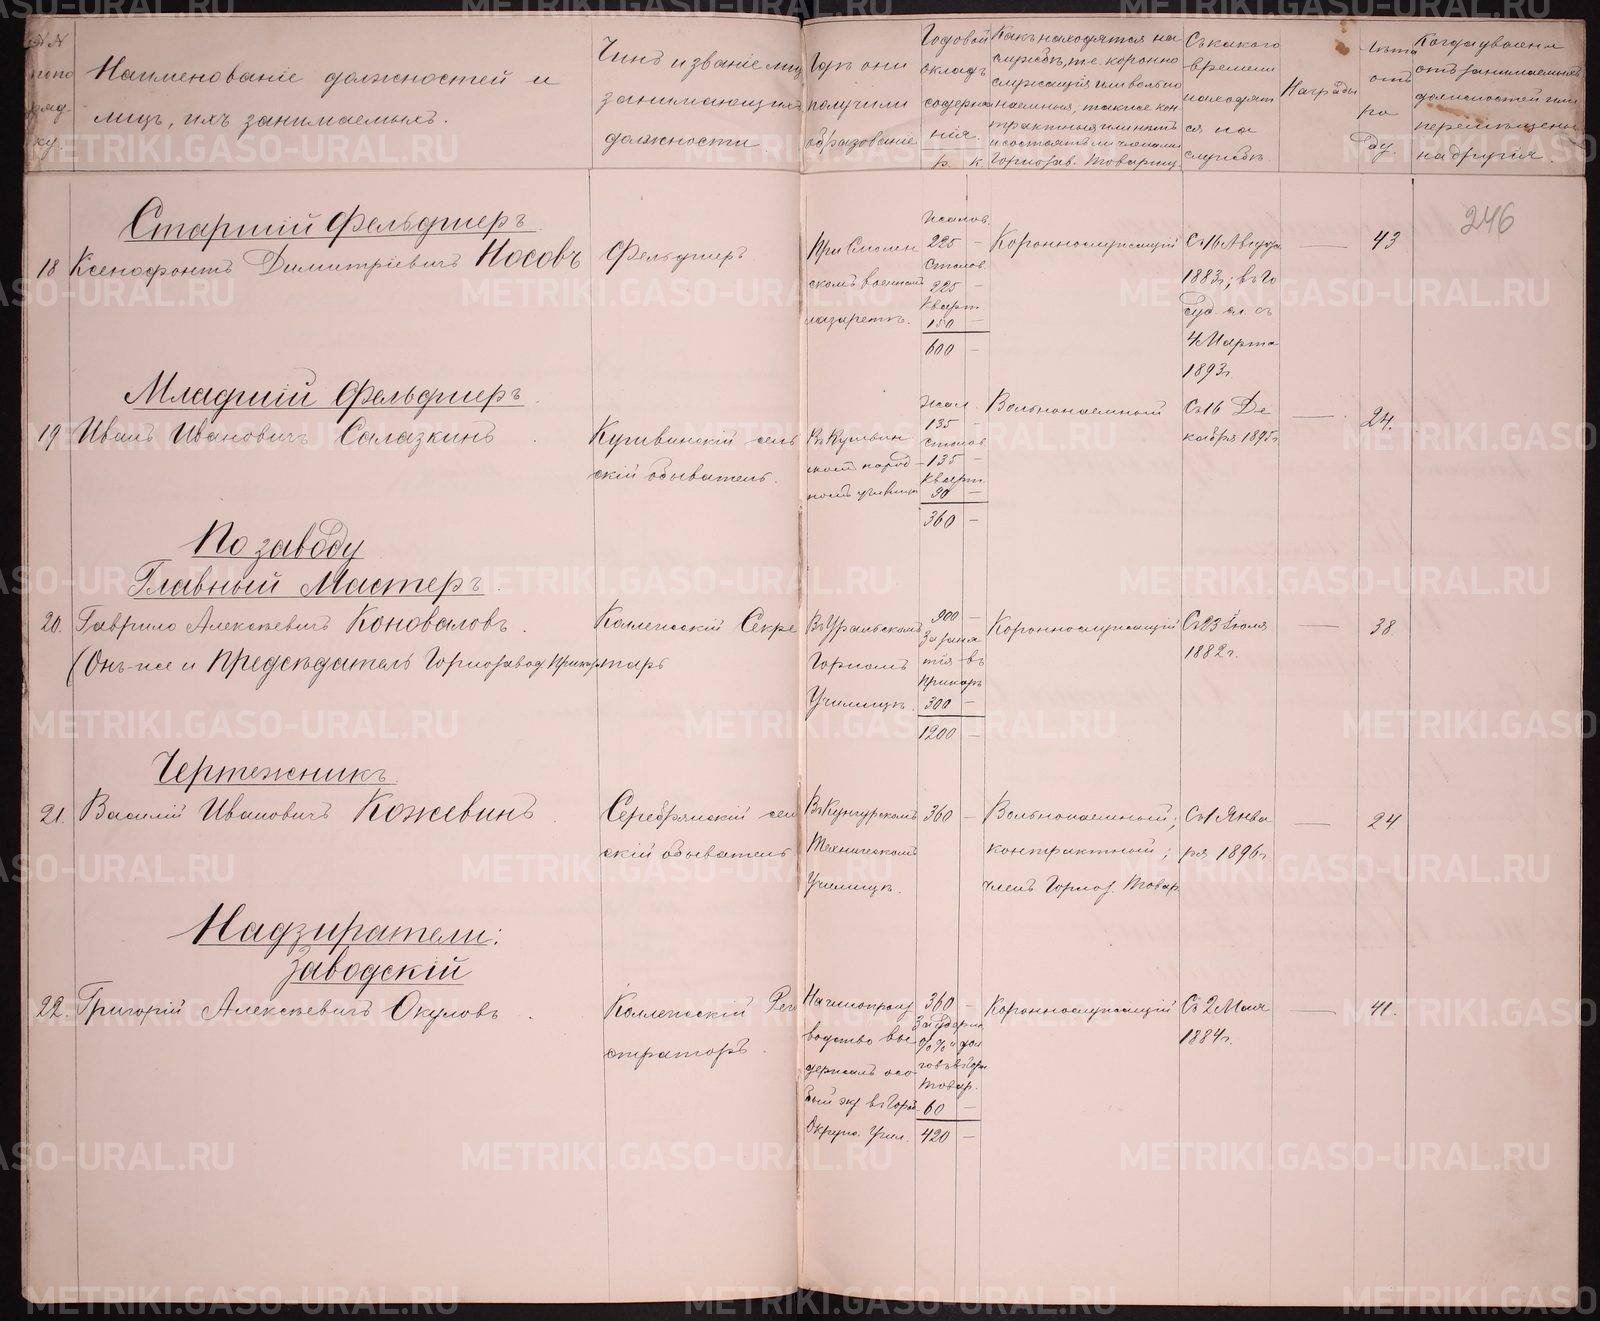 №№
по по
ряд-
ку.
Наименованіе должностей и
лицъ, ихъ занимаемыхъ.
Чинъ и званіе лицъ
занимающихъ
должности
Гдѣ они
получили
образованіе
Годовой
окладъ
содержа
нія.
р. к.
Какъ находятся на
службѣ, т.е. коронно
служащія или вольно
наемныя, также кон
трактныя или нѣтъ
и состоятъ ли членами
Горнозав. Товарищ.
Съ какого
времени
находят
ся на
службѣ.
Награды
Лѣта
отъ
ро
ду.
Когда уволены
отъ занимаемыхъ
должностей или
перемѣщены
на другія.
246
Старшій Фельдшеръ
18 Ксенофонтъ Димитріевичъ Носовъ
Фельдшеръ
При Смолен
скомъ военномъ
лазаретѣ.
Жалов.
225 -
Столов.
225 -
Кварт.
150 -
600 -
Короннослужащій
Съ 16 Августа
1883г; въ Го
суд. сл. съ
4 Марта
1893г.
43
Младшій Фельдшеръ
19 Иванъ Ивановичъ Салазкинъ
Кушвинскій сель
скій обыватель.
Въ Кушвин
скомъ народ
номъ училищѣ
Жал.
135 -
Столов
135 -
Кварт.
90 -
360 -
Вольнонаемный
Съ 16 Де
кабря 1895г.
24.
По заводу
Главный Мастеръ.
20. Гаврило Алексѣевичъ Коноваловъ.
(Онъ-же и Предсѣдатель Горнозавод. Приказа
Коллежскій Секре
тарь
Въ Уральскомъ
Горномъ
Училищѣ.
900 -
За заня
тія въ
Приказѣ
300 -
1200 -
Короннослужащій
Съ 23 Іюля
1882г.
38.
Чертежникъ.
21. Василій Ивановичъ Кожевинъ.
Серебрянскій сель
скій обыватель
Въ Кунгурскомъ
Техническомъ
Училищѣ.
360 -
Вольнонаемный;
контрактный;
членъ Горноз. Товар.
Съ 1 Янва
ря 1896г.
24
Надзиратели:
Заводскій
22. Григорій Алексѣевичъ Окуловъ.
Коллежскій Рег
страторъ.
На чинопроиз
водство вы-
держалъ осо-
бый экз. въ Горн.
Окружн. Учил.
360 -
Товар.
60 -
420 -
Короннослужащій
Съ 2 Мая
1884г.
41.
METRIKI.GASO-URAL.RU